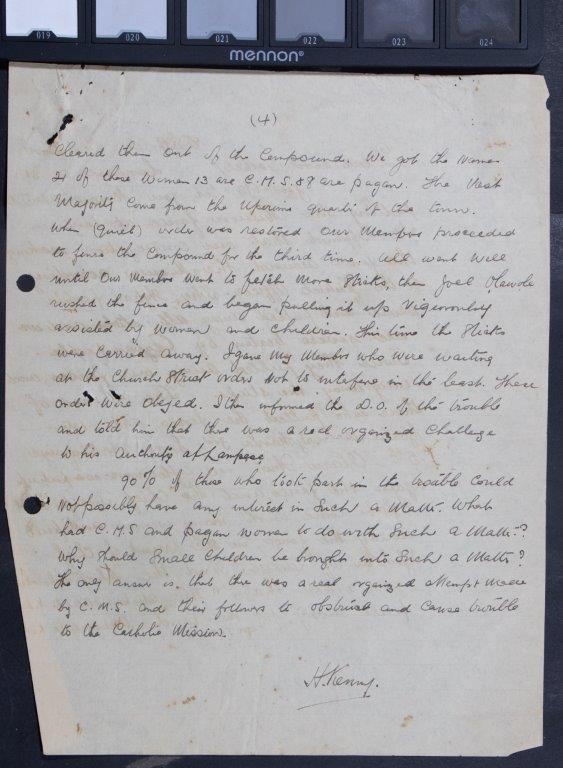 019 020 021 022 023 024
mennon®
(4)
Cleared them out of the Compound. We got the names
21 of these Women 13 are C.M.S. 8 are pagan. The Vast
Majority come from the quarter of the town.
When (quiet) order was restored our Members proceeded
to fence the Compound for the third time. All went well
until our Members went to fetch more sticks, then Joel Olawole
rushed the fence and began pulling it up vigorously
assisted by women and children. This time the sticks
were carried away. I gave my Members who were waiting
at the Church strict orders not to interfere in the least. These
orders were obeyed. I then informed the D.O. of the trouble
and told him that there was a real organized challenge
to his authority at
90% of those who took part in the trouble could
not possibly have any interest in such a matter. What
had C.M.S and pagan women to do with such a matter?
Why should small children be brought into such a matter?
The only answer is, that there was a real organized attempt made
by C.M.S. and their followers to obstruct and cause trouble
to the Catholic Mission.
H. Kenny.